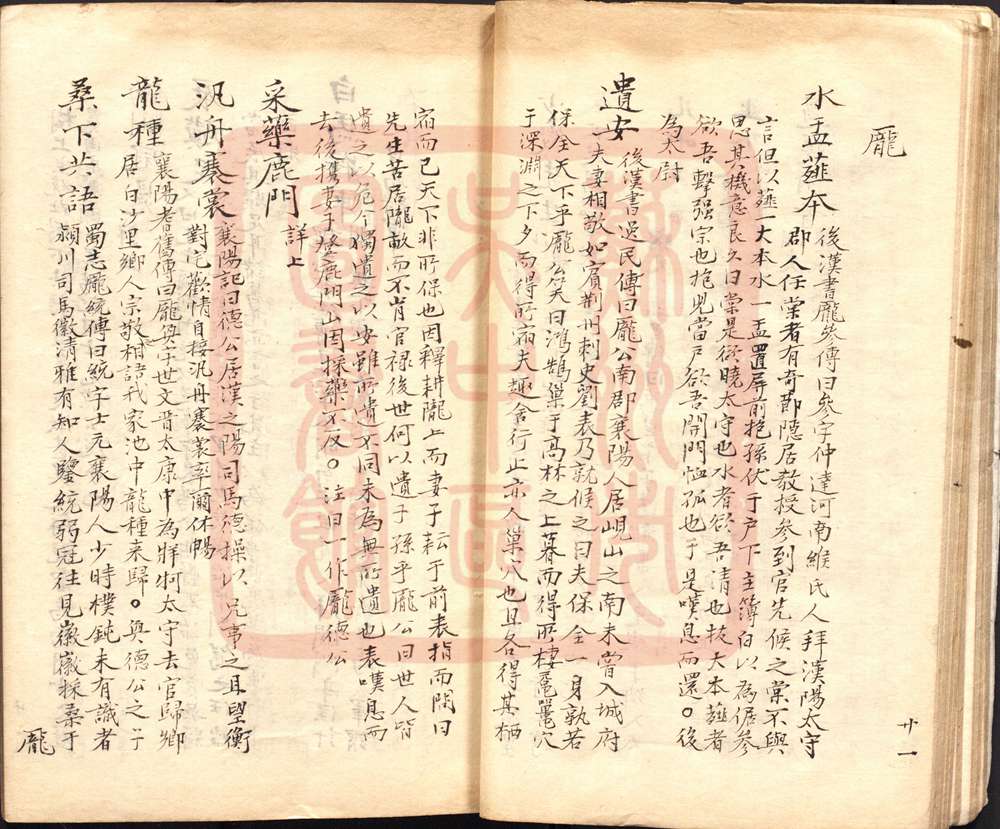 龐
水盂薤本 後漢書龐參傳曰參字仲達河南緱氏人拜漢陽太守
郡人任棠者有奇節隱居教授參到官先候之棠不與
言但以薤一大本水一盂置屏前抱孫伏于户下主簿白以為倨參
思其機意良久曰棠是欲曉太守也水者欲吾清也拔大本薤者
欲吾擊强宗也抱兒當户欲吾開門恤孤也于是嘆息而還。後
為太尉
遺安 後漢書逸民傳曰龐公南郡襄陽人居峴山之南未嘗入城府
夫妻相敬如賓荆州刺史劉表乃就候之曰夫保全一身孰若
保全天下乎龐公笑曰鴻鵠巢于高林之上暮而得所棲黿鼉穴
于深淵之下夕而得所宿夫趣舍行止亦人巢穴也且各得其栖
廿一
宿而已天下非所保也因釋耕隴上而妻子耘于前表指而問曰
先生苦居隴畝而不肯官禄後世何以遺子孫乎龐公曰世人皆
遺之以危今獨遺之以安雖所遺不同未為無所遺也表嘆息而
去後攜妻子登鹿門山因採藥不返。注曰一作龐德公
采藥鹿門 詳上
汎舟褰裳 襄陽記曰德公居漢之陽司馬德操以兄事之且望衡
對宅歡情自接汎舟褰裳率爾休暢
龍種 襄陽耆舊傳曰龐奐字世文晉太康中為牂牁太守去官歸鄉
居白沙里鄉人宗敬相語我家池中龍種来歸。奐德公之子
桑下共語 蜀志龐統傳曰統字士元襄陽人少時樸鈍未有識者
潁川司馬徽清雅有知人鑒統弱冠往見徽徽採桑于
龐